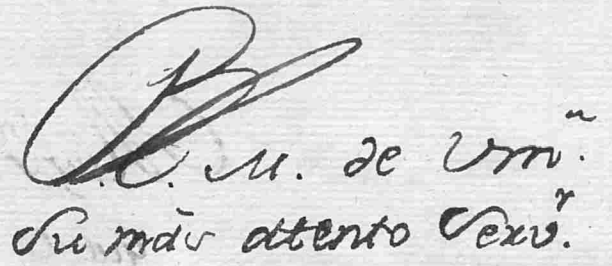 B. L. M. de Vm.
Su más attento Serv.r